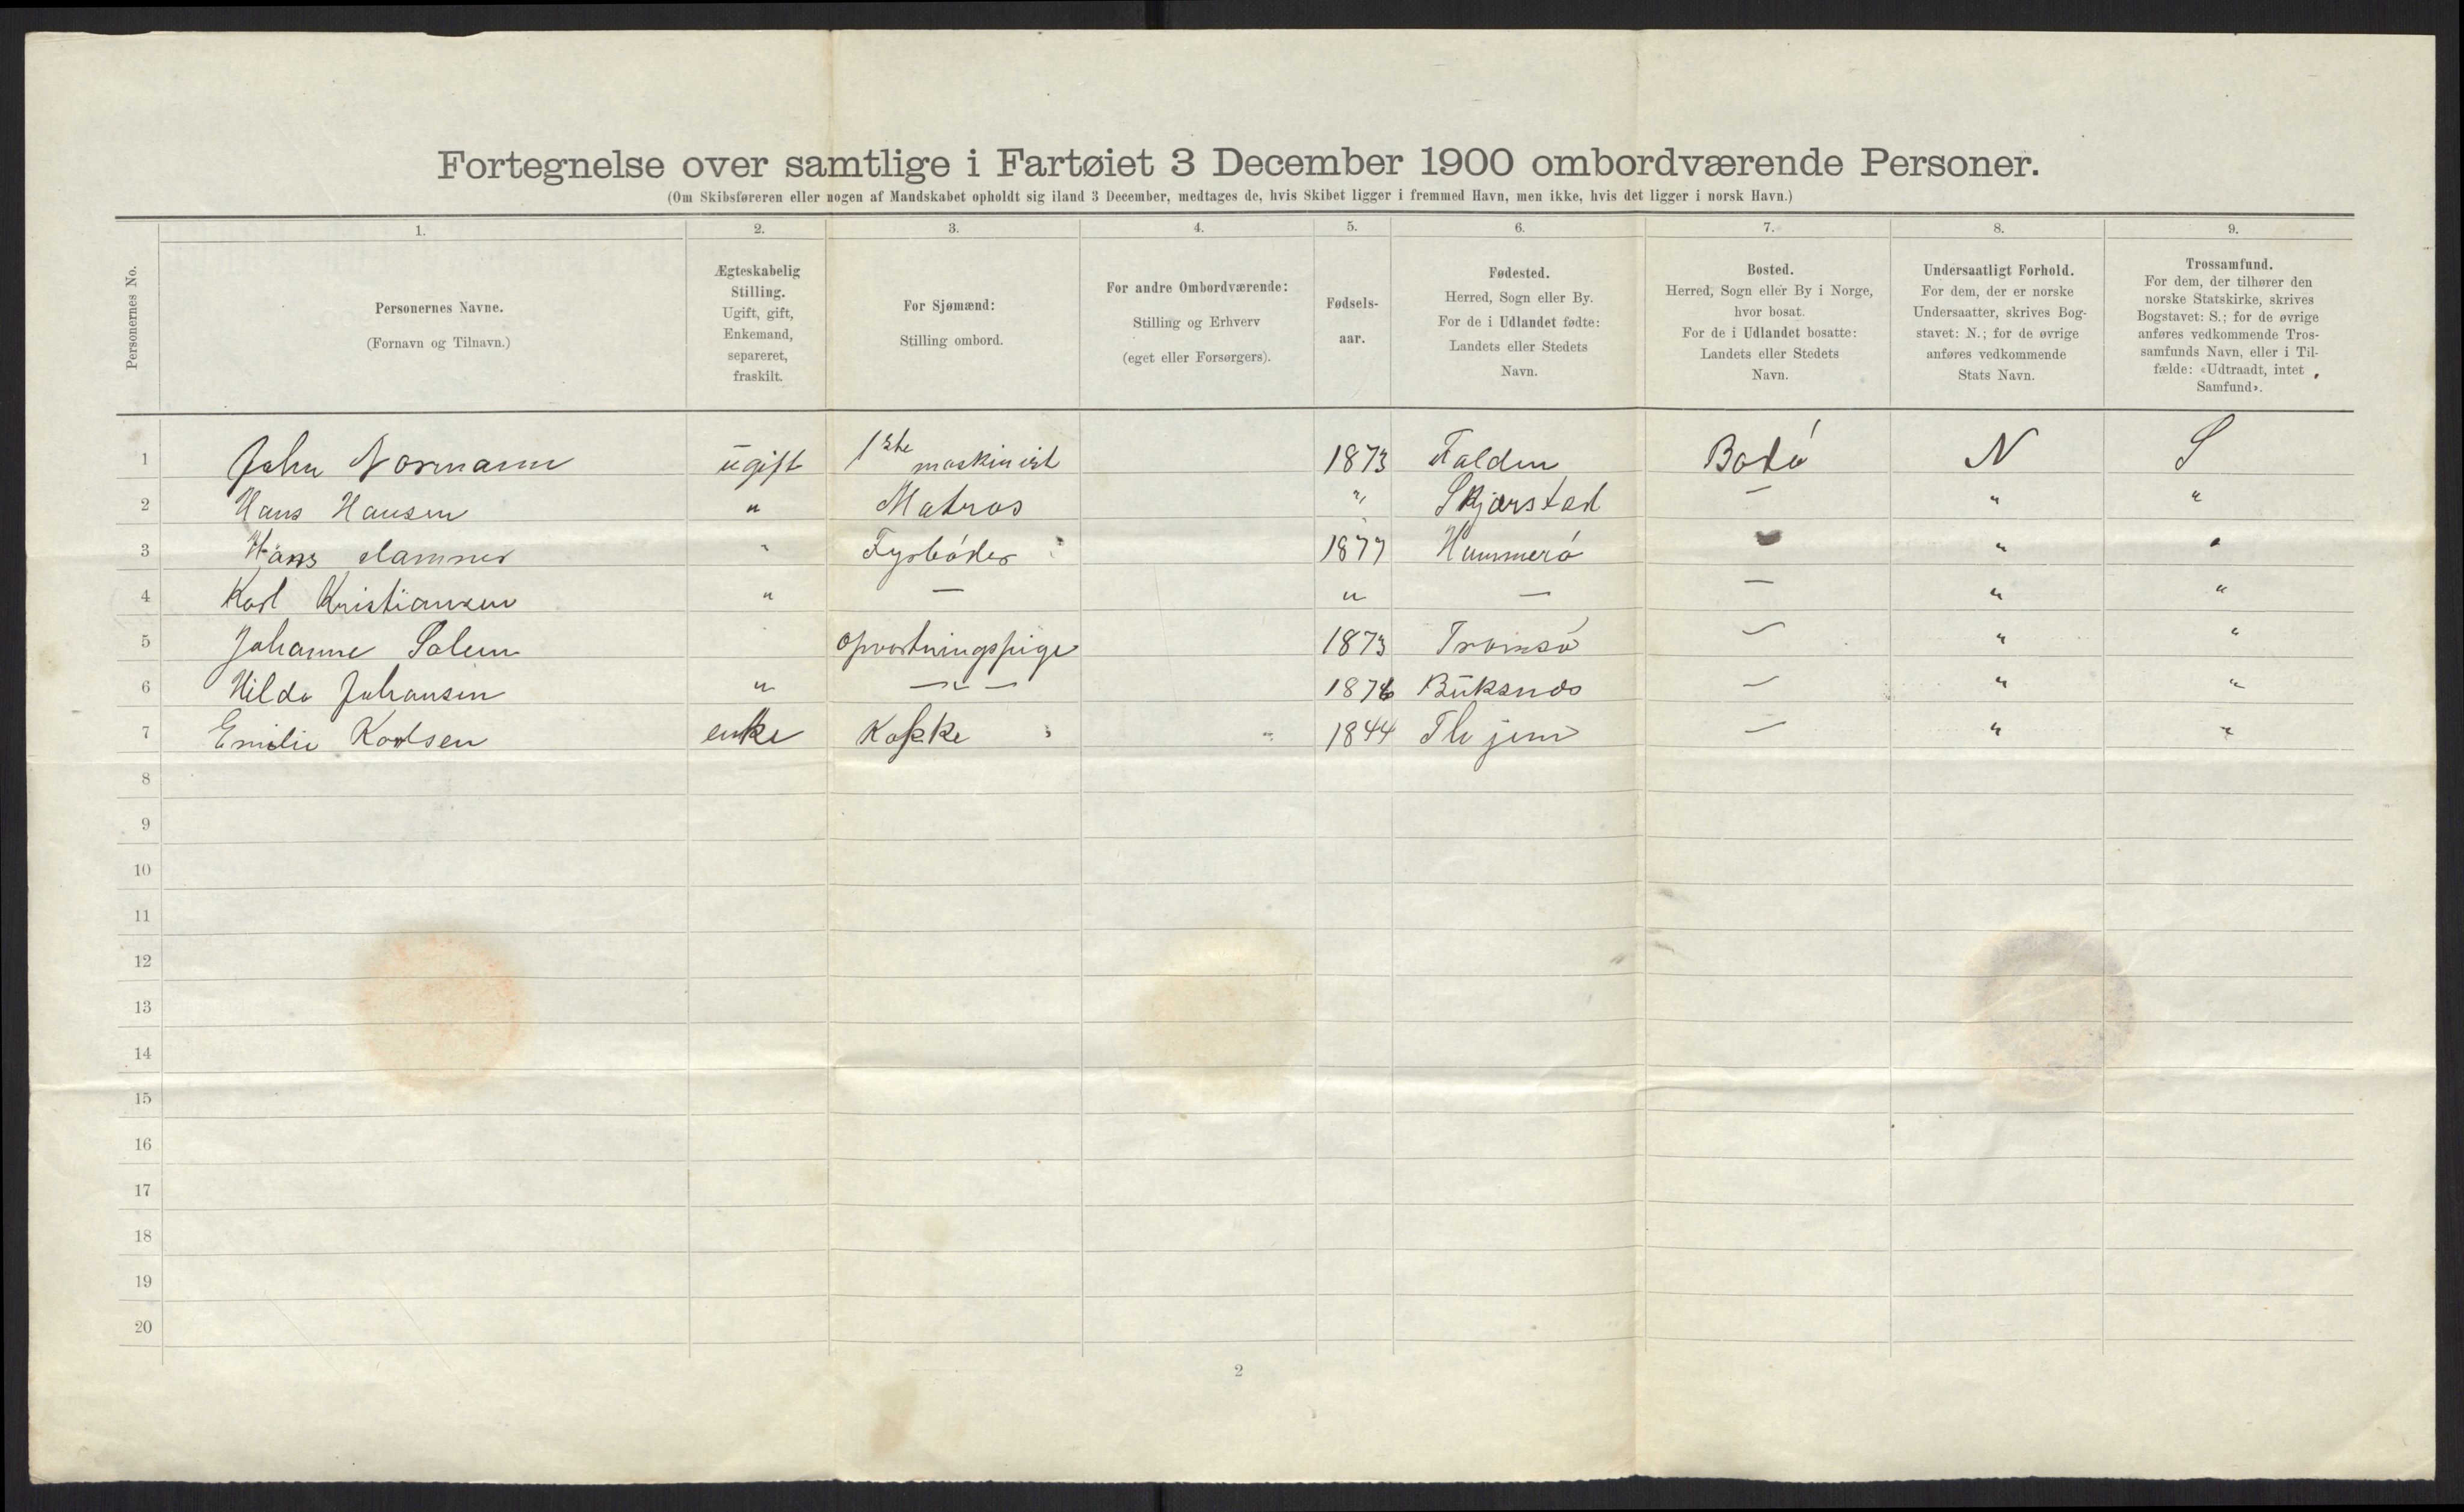 Fortegnelse over samtlige i Fartøiet 3 December 1900 ombordværende Personer.
(Om Skibsføreren eller nogen af Mandskabet opholdt sig iland 3 December, medtages de, hvis Skibet ligger i fremmed Havn, men ikke, hvis det ligger i norsk Havn.)
Personernes No.
1.
Personernes Navne.
(Fornavn og Tilnavn.)
2.
Ægteskabelig
Stilling.
Ugift, gift,
Enkemand,
separeret,
fraskilt.
3.
For Sjømænd:
Stilling ombord.
4.
For andre Ombordværende:
Stilling og Erhverv
(eget eller Forsørgers).
5.
Fødsels-
aar.
6.
Fødested.
Herred, Sogn eller By.
For de i Udlandet fødte:
Landets eller Stedets
Navn.
7.
Bosted.
Herred, Sogn eller By i Norge,
hvor bosat.
For de i Udlandet bosatte:
Landets eller Stedets
Navn.
8.
Undersaatligt Forhold.
For dem, der er norske
Undersaatter, skrives Bog-
stavet: N.; for de øvrige
anføres vedkommende
Stats Navn.
9.
Trossamfund.
For dem, der tilhører den
norske Statskirke, skrives
Bogstavet: S.; for de øvrige
anføres vedkommende Tros-
samfunds Navn, eller i Til-
fælde: «Udtraadt, intet
Samfund».
1 John Normann ugift 1ste maskinist 1873 Folden Bodø N S
2 Hans Hansen " Matros " Skjærstad — " "
3 Hans " Fyrbøder 1877 Hammerø " "
4 Karl Kristiansen " — " — — " "
5 Johanne Solem opvartningspige 1873 Tromsø — " "
6 Hilda Johansen " —"— 1876 Buksnes — " "
7 Emilie Karlsen enke Kokke 1844 — " "
8
9
10
11
12
13
14
15
16
17
18
19
20
2